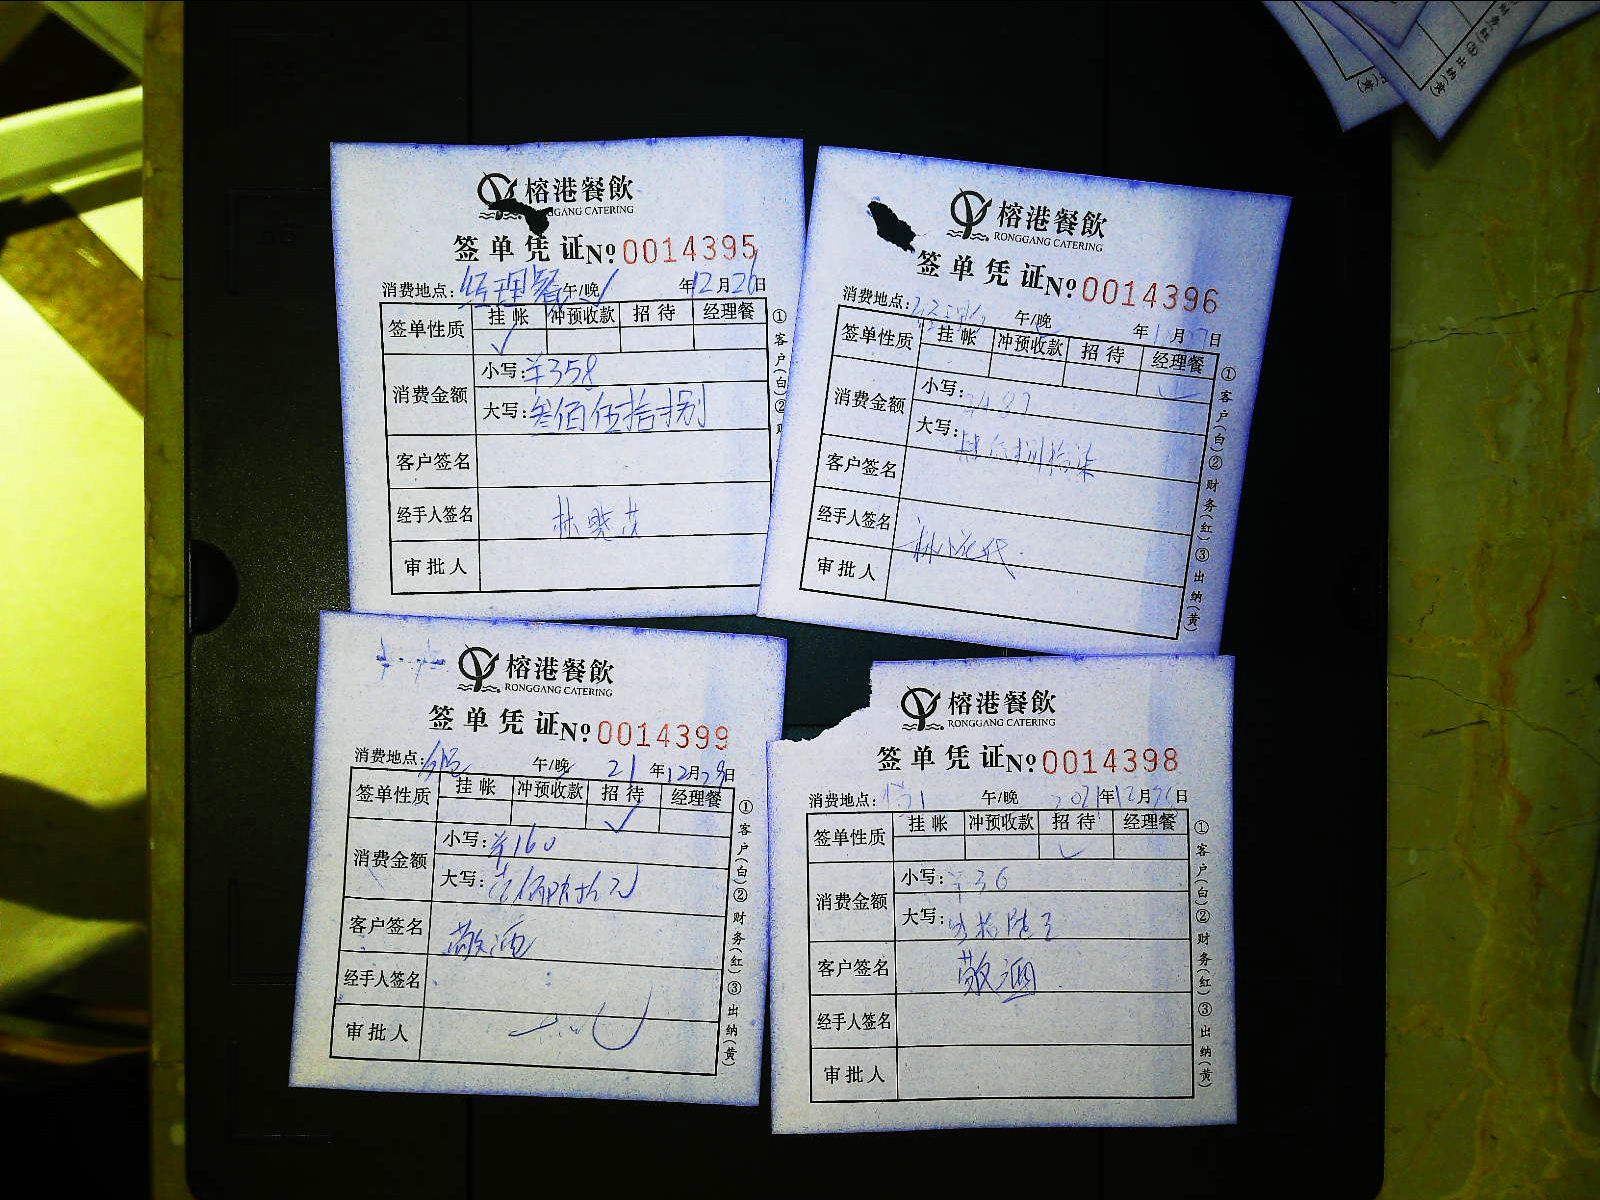 榕港餐飲
GANG CATERING
签单凭证 № 0014395
消费地点: 经理餐 午/晚 年12月26日
签单性质 挂帐 冲预收款 招待 经理餐
消费金额 小写: ¥358
大写: 叁佰伍拾捌
客户签名
经手人签名
审批人
①客户(白)②财
榕港餐飲
RONGGANG CATERING
签单凭证 № 0014396
消费地点: 午/晚 年 月 日
签单性质 挂帐 冲预收款 招待 经理餐
消费金额 小写:
大写:
客户签名
经手人签名
审批人
①客户(白)②财务(红)③出纳(黄)
榕港餐飲
RONGGANG CATERING
签单凭证 № 0014399
消费地点: 午/晚 21年12月 日
签单性质 挂帐 冲预收款 招待 经理餐
消费金额 小写: ¥160
大写: 壹佰陆拾元
客户签名 敬酒
经手人签名
审批人
①客户(白)②财务(红)③出纳(黄)
榕港餐飲
RONGGANG CATERING
签单凭证 № 0014398
消费地点: 午/晚 2021年12月 日
签单性质 挂帐 冲预收款 招待 经理餐
消费金额 小写: ¥36
大写:
客户签名 敬酒
经手人签名
审批人
①客户(白)②财务(红)③出纳(黄)
财务(红)③出纳(黄)